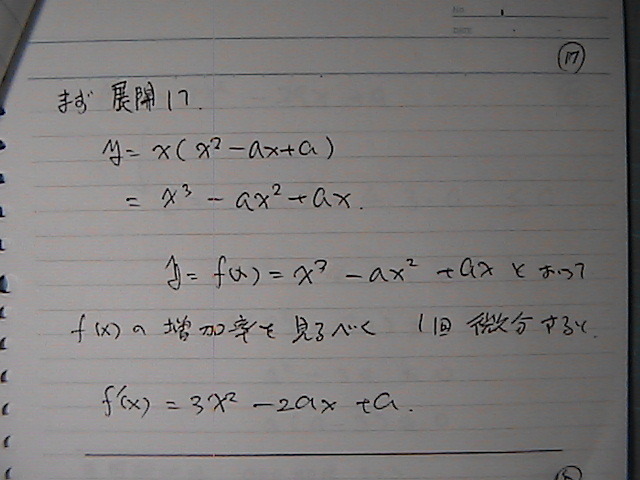 No.
17
まず 展開して
y = x(x² - ax + a)
= x³ - ax² + ax.
y = f(x) = x³ - ax² + ax とおいて
f(x) の 増加率を見るべく 1回 微分すると.
f'(x) = 3x² - 2ax + a.